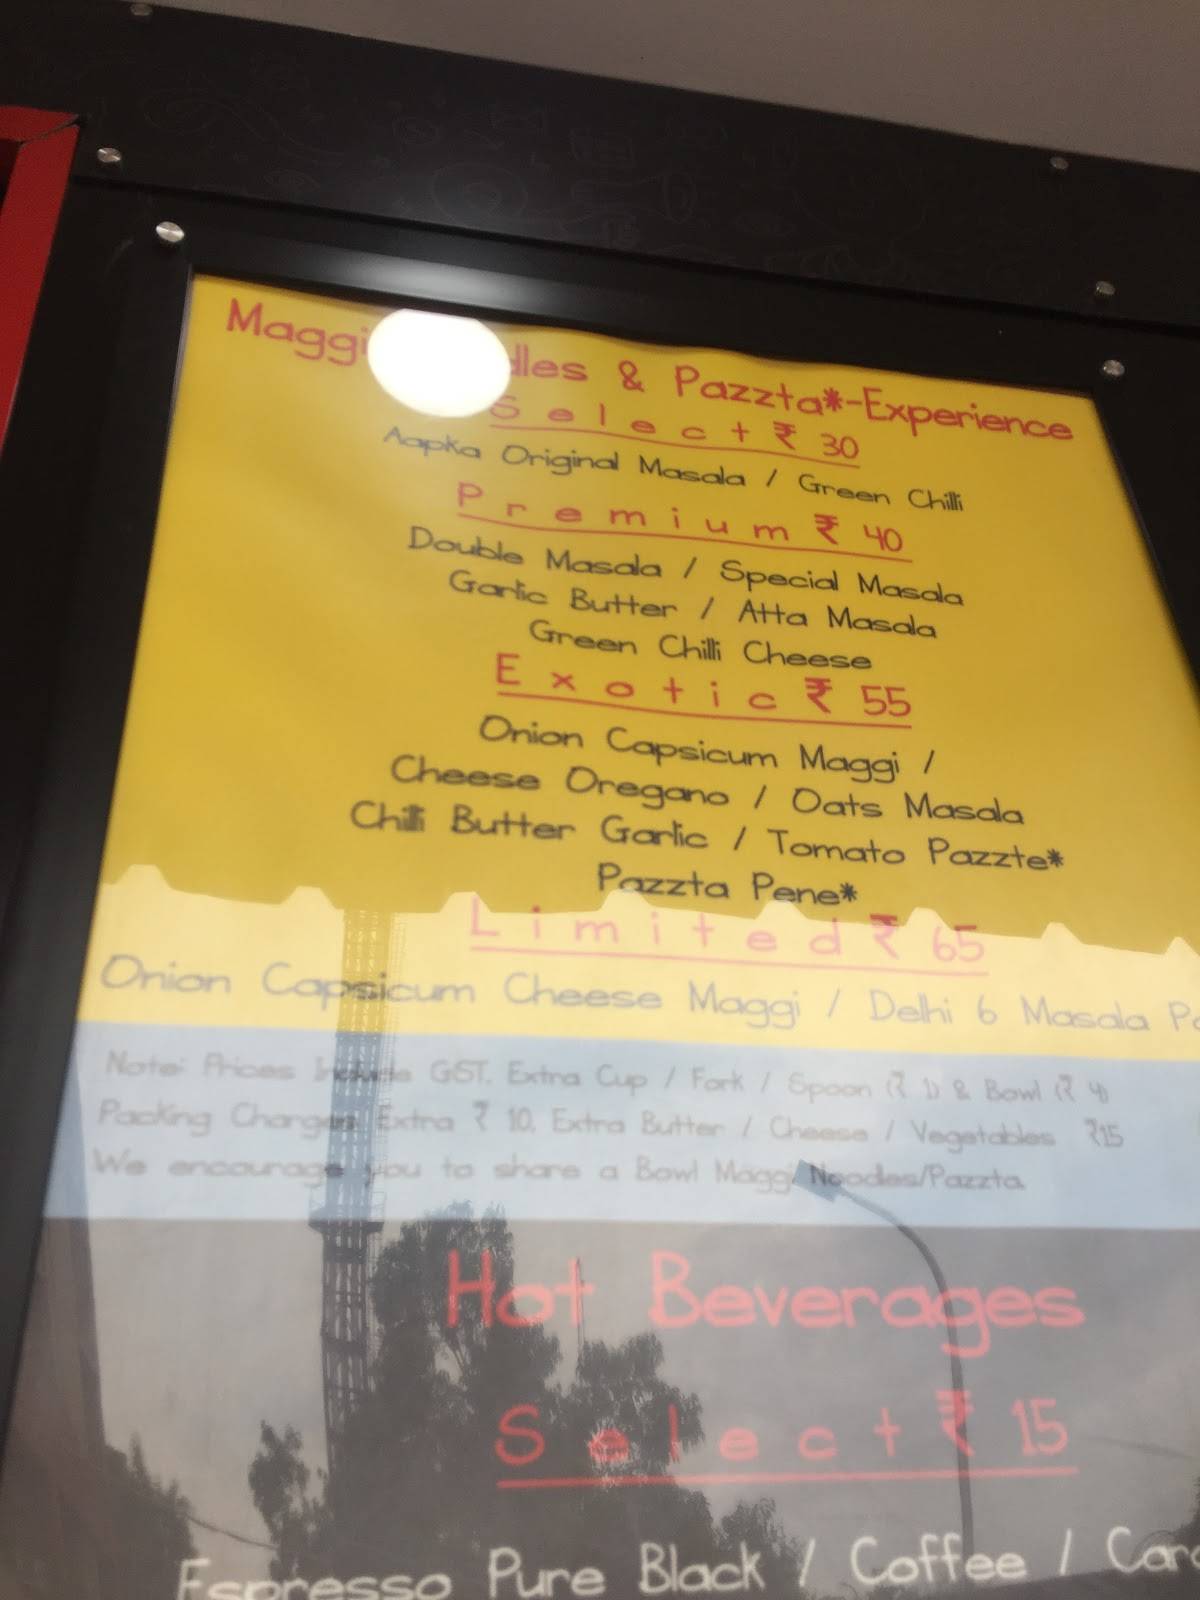 Maggi & Pazzta*-Experience
Select ₹ 30
Aapka Original Masala / Green Chilli
Premium ₹ 40
Double Masala / Special Masala
Garlic Butter / Atta Masala
Green Chilli Cheese
Exotic ₹ 55
Onion Capsicum Maggi /
Cheese Oregano / Oats Masala
Chilli Butter Garlic / Tomato Pazzte*
Pazzta Pene*
Limited ₹ 65
Onion Capsicum Cheese Maggi / Delhi 6 Masala
Note: Prices Include GST. Extra Cup / Fork / Spoon (₹ 1) & Bowl (₹ 4)
Packing Charges Extra ₹ 10. Extra Butter / Cheese / Vegetables ₹15
We encourage you to share a Bowl Maggi Noodles/Pazzta
Hot Beverages
Select ₹ 15
Espresso Pure Black / Coffee /